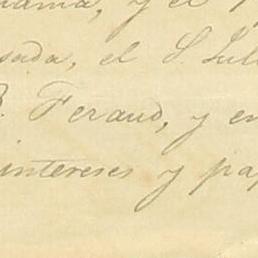 y el
sada, el S. Lu
B. Feraud, y en
intereses y pa